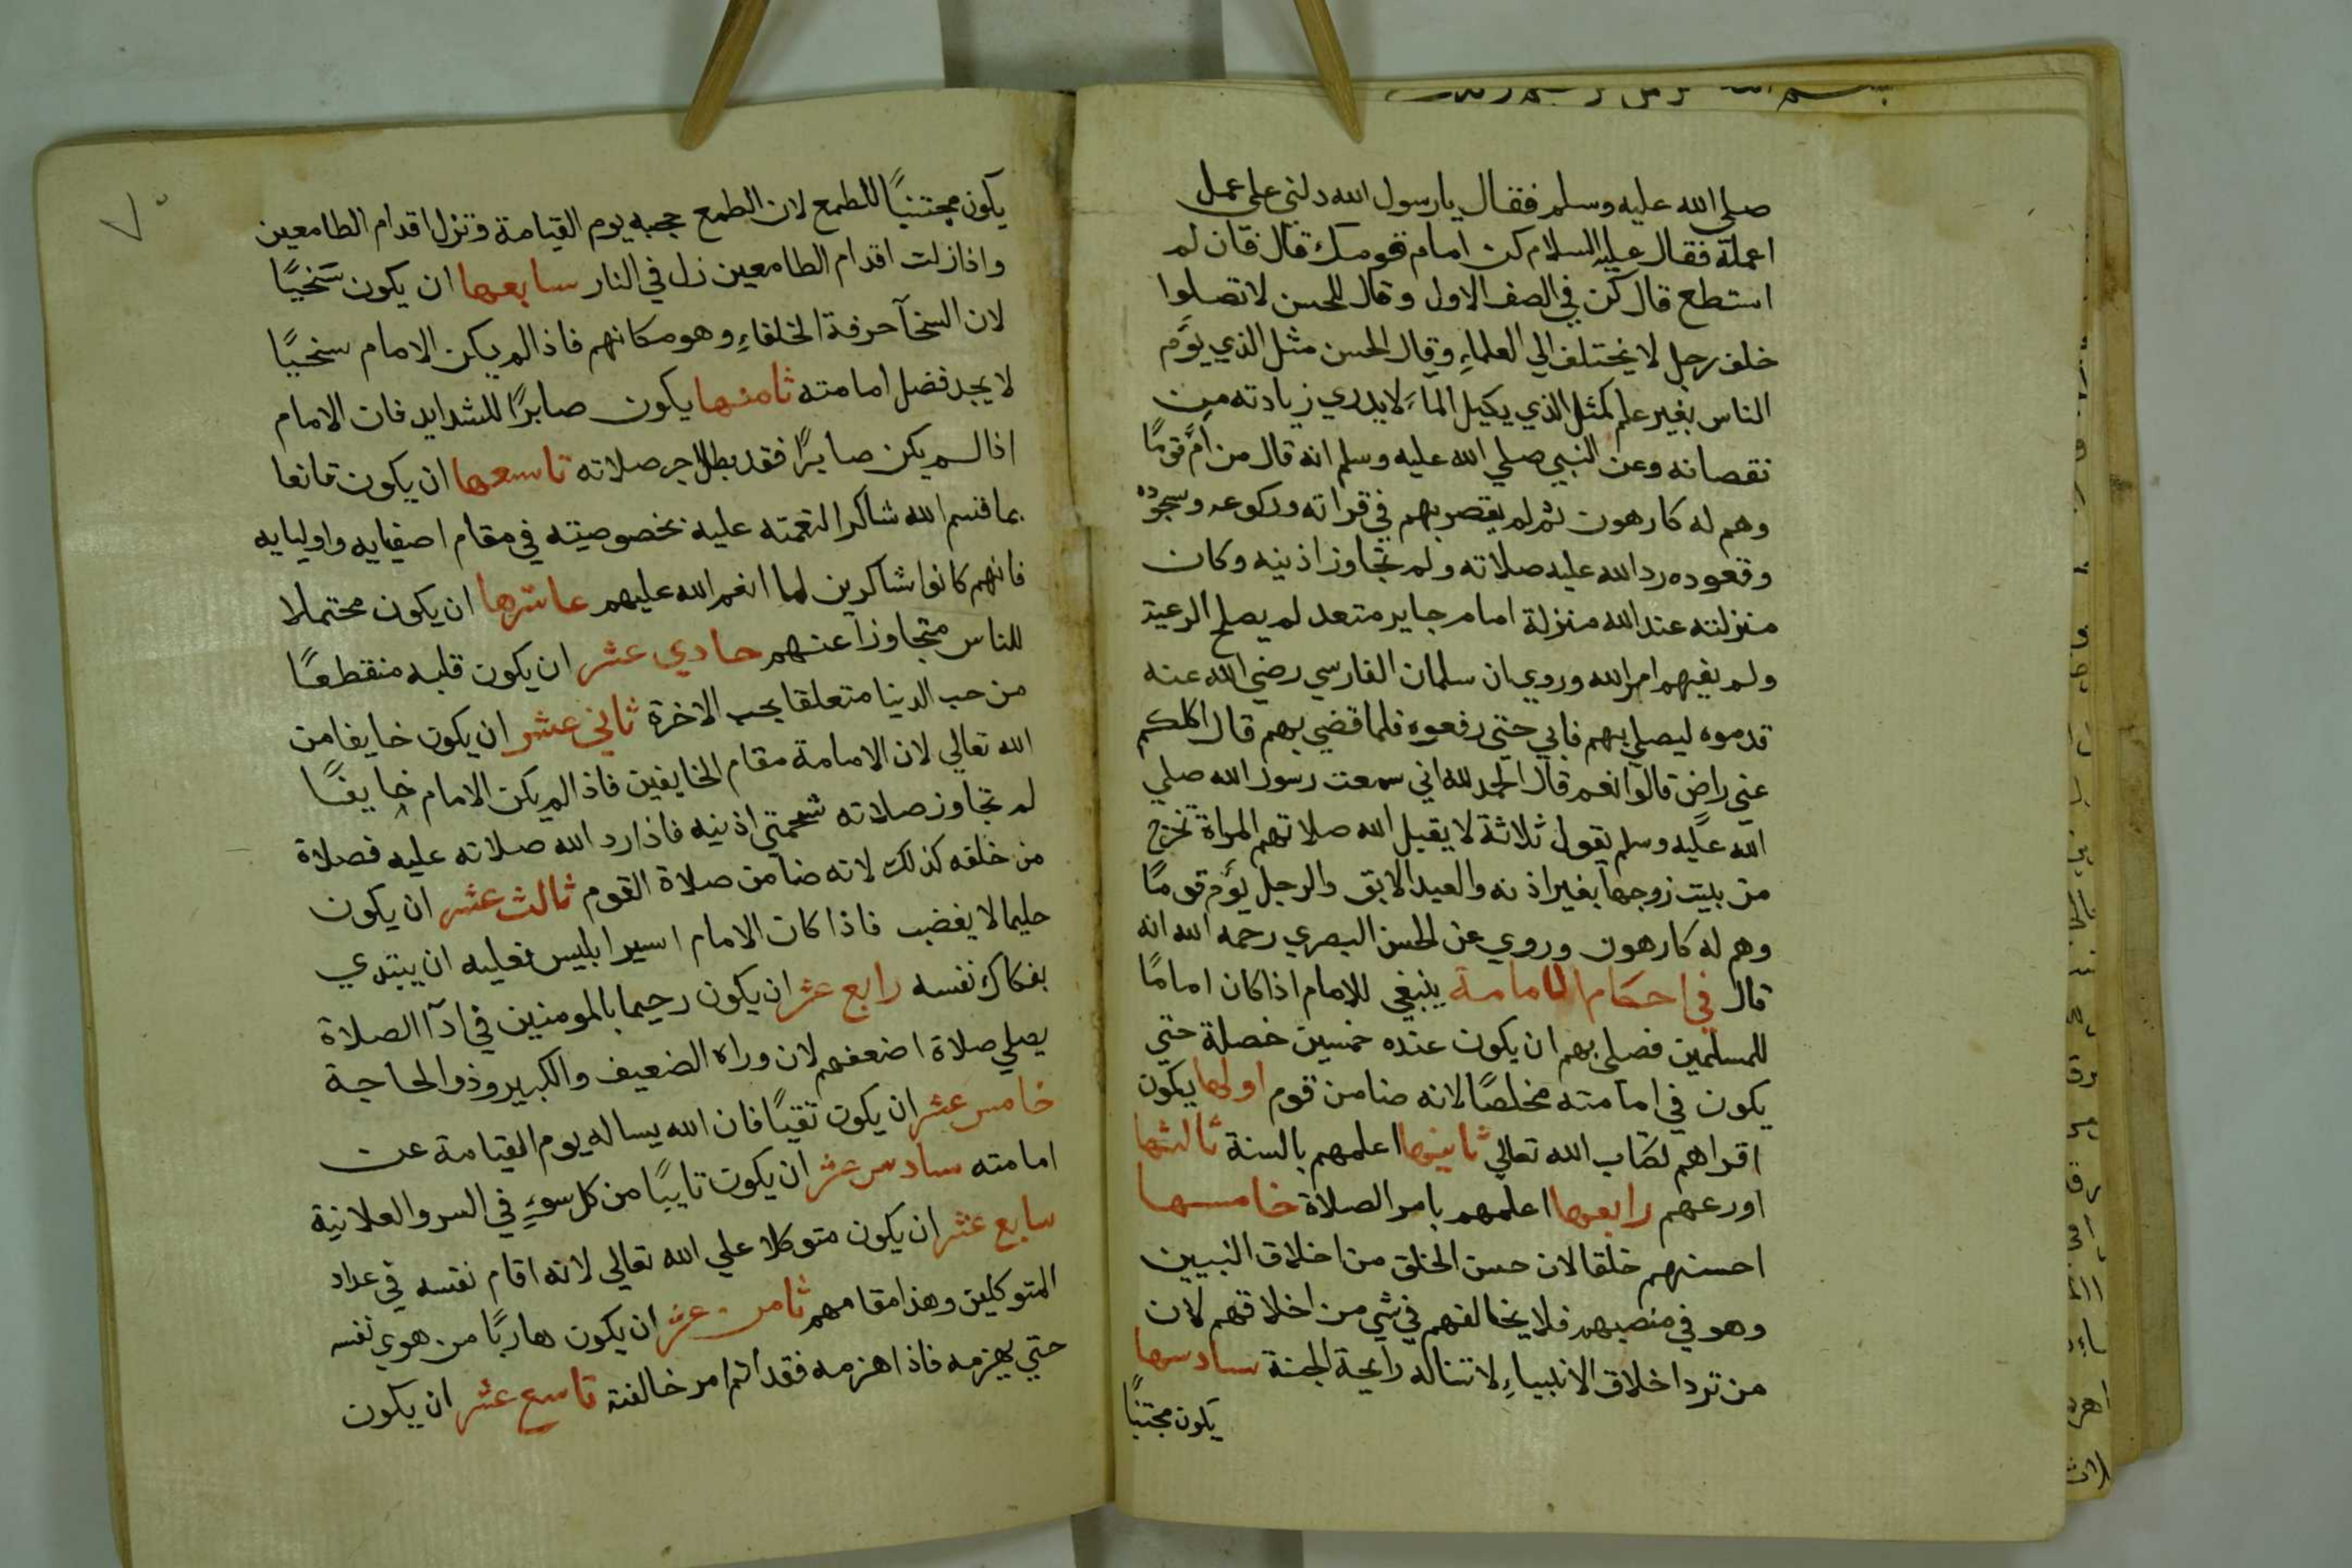 صلي الله عليه وسلم فقال يارسول الله دلني علي عمل
اعمله فقال عليه السلام كن امام قومك قال فان لم
استطع قال كن في الصف الاول وقال للحسن لاتصلوا
خلف رجل لا يختلف الي العلماءِ وقال الحسن مثل الذي يؤم
الناس بغير علم كمثل الذي يكيل الماء لايدري زيادته من
نقصانه وعن النبي صلي الله عليه وسلم انه قال من امَّ قومًا
وهم له كارهون ثم لم يقصر بهم في قراته وركوعه وسجوده
وقعوده رد الله عليه صلاته ولم تجاوز اذنيه وكان
منزلته عند الله منزلة امام جاير متعد لم يصلح الرعية
ولم يقيهم امر الله وروي ان سلمان الفارسي رضي الله عنه
قدموه ليصلي بهم فابي حتي رفعوه فلما قضي بهم قال اكلكم
عني راضٍ قالوا نعم قال الحمد لله اني سمعت رسول الله صلي
الله عليه وسلم يقول ثلاثة لا يقبل الله صلاتهم المراة تخرج
من بيت زوجها بغير اذنه والعبد الابق والرجل يؤم قومًا
وهم له كارهون وروي عن الحسن البصري رحمه الله انه
قال في احكام الامامة ينبغي للامام اذا كان امامًا
للمسلمين فصلي بهم ان يكون عنده خمسين خصلة حتي
يكون في امامته مخلصًا لانه ضامن قوم اولها يكون
اقراهم لكتاب الله تعالي ثانيها اعلمهم بالسنة ثالثها
اورعهم رابعها اعلمهم بامر الصلاة خامسها
احسنهم خلقا لان حسن الخلق من اخلاق النبيين
وهو في منصبهم فلا يخالفهم في شي من اخلاقهم لان
من ترد اخلاق الانبياءِ لا تناله رايحة الجنة سادسها
يكون مجتنبًا
٧٠
يكون مجتنبًا للطمع لان الطمع حجبه يوم القيامة وتزل اقدام الطامعين
واذا زلت اقدام الطامعين زل في النار سابعها ان يكون سخيًا
لان السخآ حرفة الخلفاءِ وهو مكانهم فاذا لم يكن الامام سخيًا
لا يجد فضل امامته ثامنها يكون صابرًا للشدايد فان الامام
اذا لم يكن صابرًا فقد بطل اجر صلاته تاسعها ان يكون قانعا
بما قسم الله شاكرا لنعمته عليه بخصوصيته في مقام اصفيايه واوليايه
فانهم كانوا شاكرين لما انعم الله عليهم عاشرها ان يكون محتملا
للناس متجاوزا عنهم حادي عشر ان يكون قلبه منقطعًا
من حب الدنيا متعلقا بحب الاخرة ثاني عشر ان يكون خايفا من
الله تعالي لان الامامة مقام الخايفين فاذا لم يكن الامام خايفًا
لم تجاوز صلاته شحمتي اذنيه فاذا رد الله صلاته عليه فصلاة
من خلفه كذلك لانه ضامن صلاة القوم ثالث عشر ان يكون
حليما لا يغضب فاذا كان الامام اسير ابليس فعليه ان يبتدي
بفكاك نفسه رابع عشر ان يكون رحيما بالمومنين في ادآ الصلاة
يصلي صلاة اضعفهم لان وراه الضعيف والكبير وذو الحاجة
خامس عشر ان يكون تقيًا فان الله يساله يوم القيامة عن
امامته سادس عشر ان يكون تايبًا من كل سوءٍ في السر والعلانية
سابع عشر ان يكون متوكلا علي الله تعالي لانه اقام نفسه في عداد
المتوكلين وهذا مقامهم ثامن عشر ان يكون هاربًا من هوي نفسه
حتي يهزمه فاذا هزمه فقد اتم امر خالفته تاسع عشر ان يكون